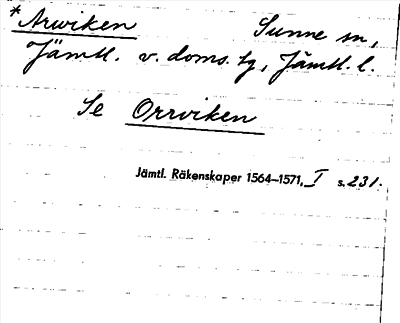 *Arwiken Sunne sn,
Jämtl. v. doms. tg, Jämtl. l.
Se Orrviken
Jämtl. Räkenskaper 1564–1571, I s. 231.